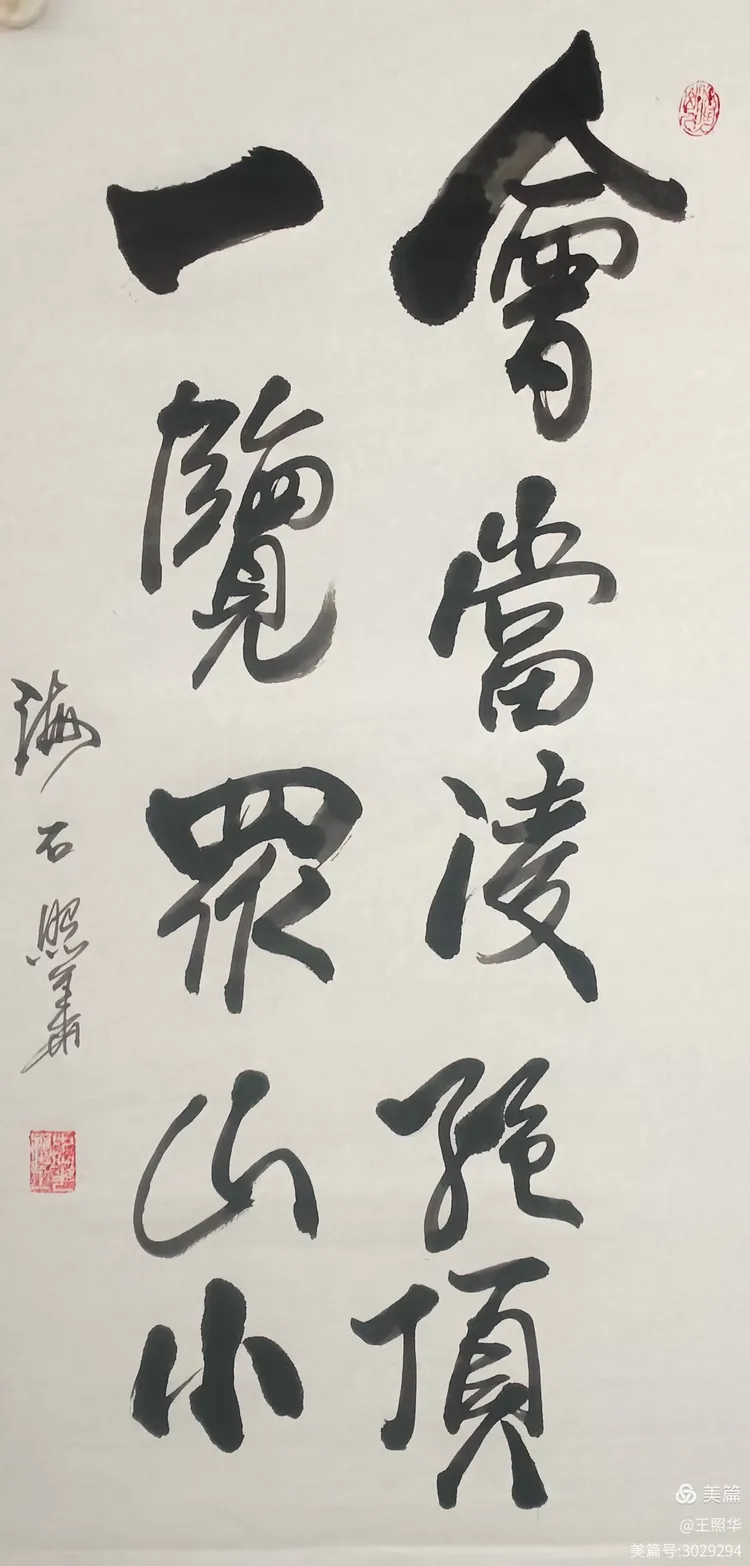 會當淩絕頂
一覽眾山小
海石照華
美篇
@王照华
美篇号:3029294